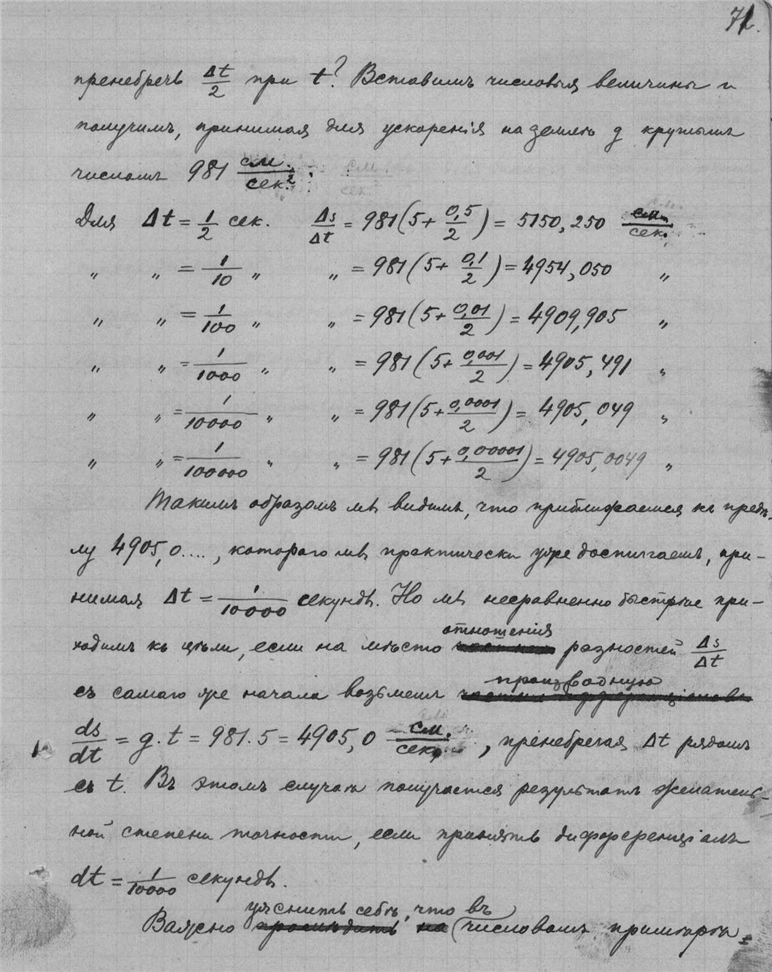 71.
пренебречь Δt/2 при t? Вставимъ числовыя величины и
получимъ, принимая для ускоренія на землѣ g круглымъ
числомъ 981 см./сек.² :
Для Δt = 1/2 сек. Δs/Δt = 981(5+0,5/2) = 5150,250 см./сек.
„ „ = 1/10 „ „ = 981(5+0,1/2) = 4954,050 „
„ „ = 1/100 „ „ = 981(5+0,01/2) = 4909,905 „
„ „ = 1/1000 „ „ = 981(5+0,001/2) = 4905,491 „
„ „ = 1/10000 „ „ = 981(5+0,0001/2) = 4905,049 „
„ „ = 1/100000 „ „ = 981(5+0,00001/2) = 4905,0049 „
Такимъ образомъ мы видимъ, что приближаемся къ предѣ-
лу 4905,0...., котораго мы практически уже достигаемъ, при-
нимая Δt = 1/10000 секунды. Но мы несравненно быстрѣе при-
ходимъ къ цѣли, если на мѣсто отношенія разностей Δs/Δt
съ самаго же начала возьмемъ производную
ds/dt = g.t = 981.5 = 4905,0 см./сек., пренебрегая Δt рядомъ
съ t. Въ этомъ случаѣ получается результатъ желатель-
ной степени точности, если принять дифференціалъ
dt = 1/10000 секунды.
Важно уяснить себѣ, что въ числовомъ примѣрѣ